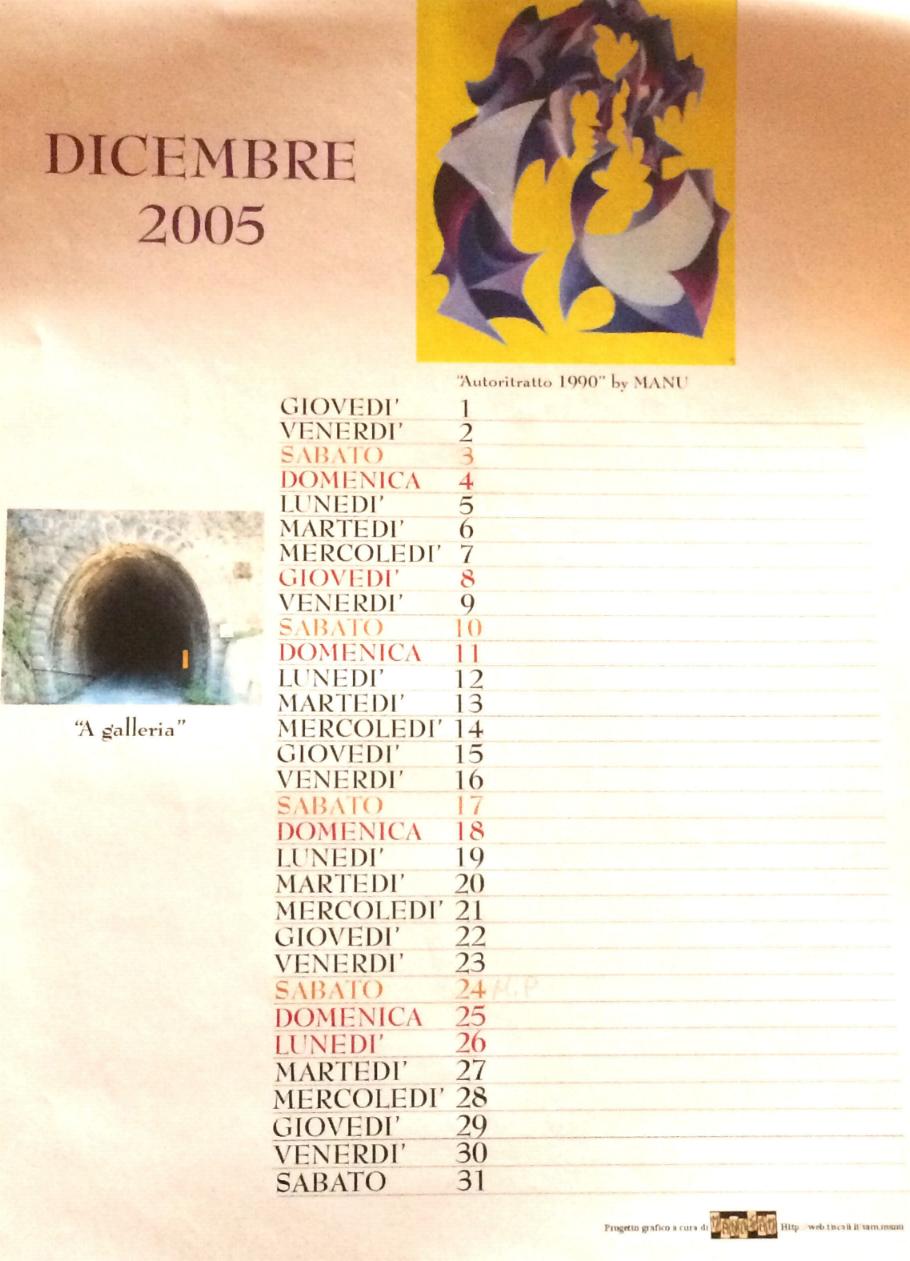 DICEMBRE
2005
"Autoritratto 1990" by MANU
GIOVEDI' 1
VENERDI' 2
SABATO 3
DOMENICA 4
LUNEDI' 5
MARTEDI' 6
MERCOLEDI' 7
GIOVEDI' 8
VENERDI' 9
SABATO 10
DOMENICA 11
LUNEDI' 12
MARTEDI' 13
MERCOLEDI' 14
GIOVEDI' 15
VENERDI' 16
SABATO 17
DOMENICA 18
LUNEDI' 19
MARTEDI' 20
MERCOLEDI' 21
GIOVEDI' 22
VENERDI' 23
SABATO 24 M.P
DOMENICA 25
LUNEDI' 26
MARTEDI' 27
MERCOLEDI' 28
GIOVEDI' 29
VENERDI' 30
SABATO 31
"A galleria"
Progetto grafico a cura di